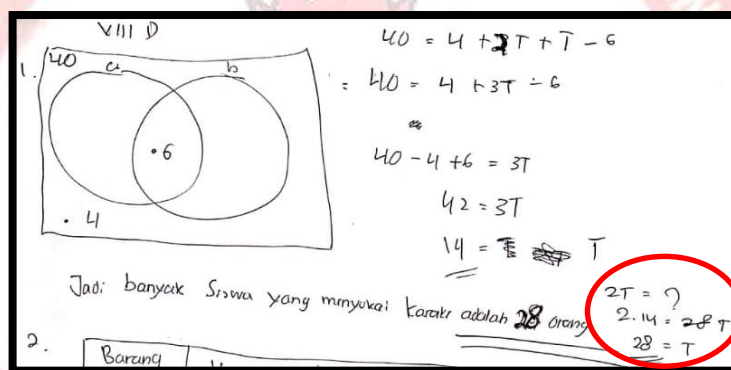 VIII D
1.
40 a b
. 6
. 4
40 = 4 + 2T + T - 6
= 40 = 4 + 3T - 6
40 - 4 + 6 = 3T
42 = 3T
14 = T
Jadi banyak siswa yang menyukai karate adalah 28 orang
2T = ?
2.14 = 28 T
28 = T
2.
Barang